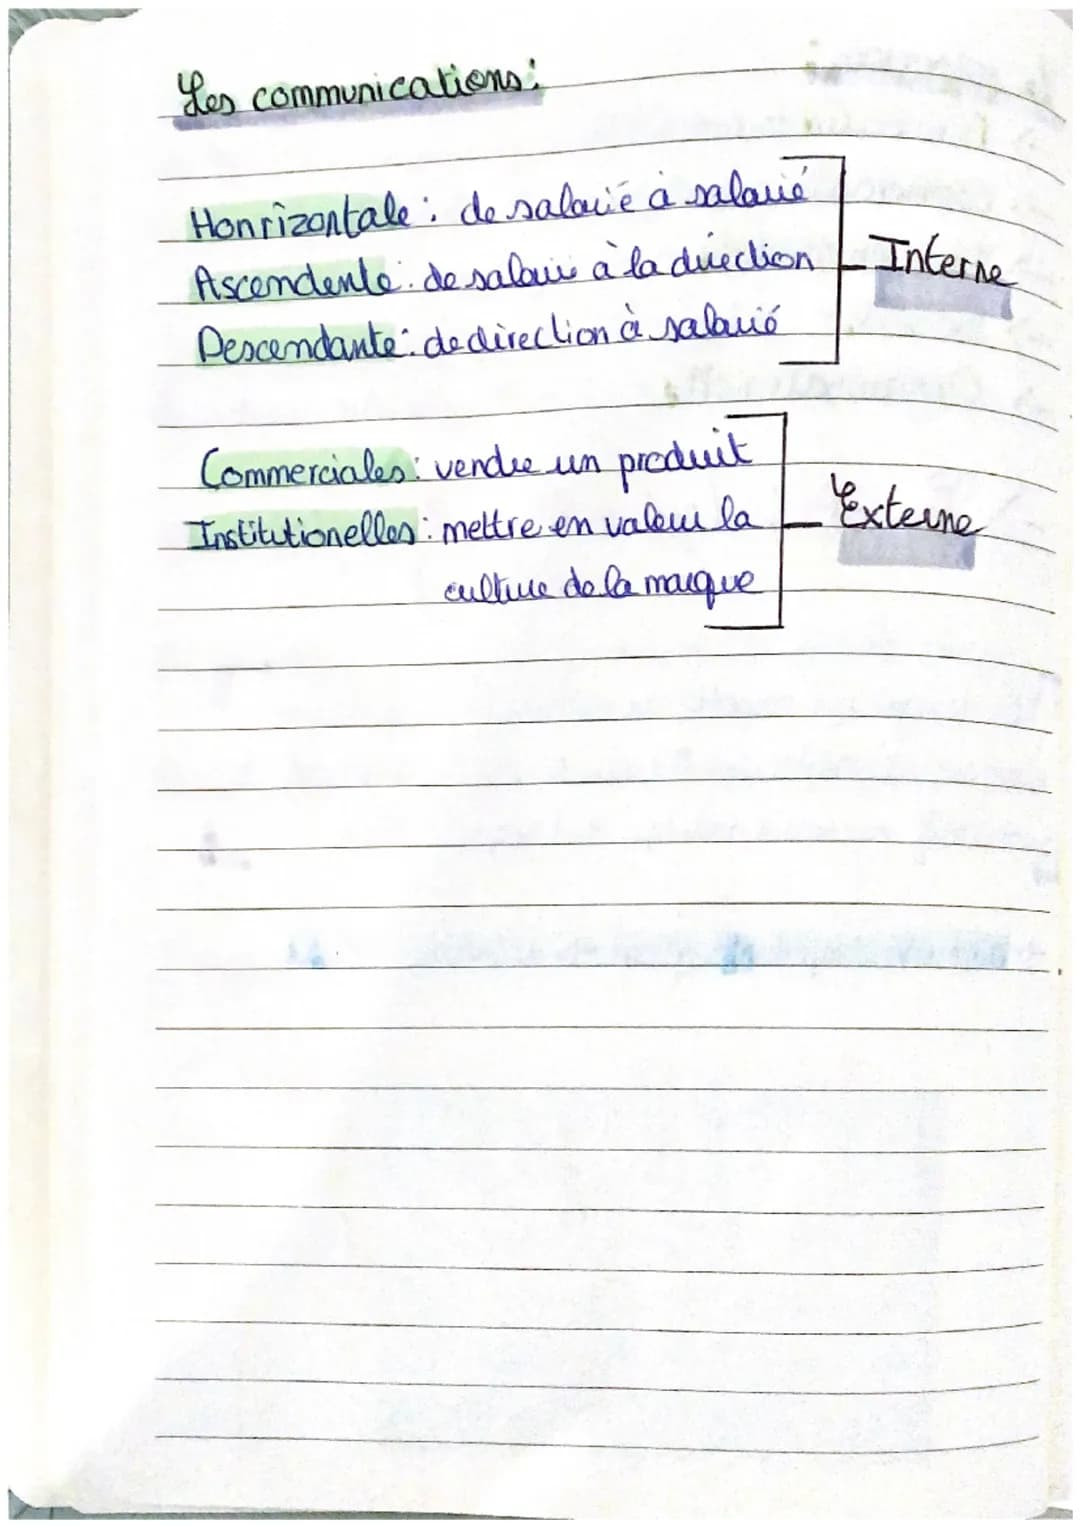 Les communications :
Honrizontale : de salarié à salarié
Ascendente : de salarié à la direction
Interne
Descendante : de direction à salarié
Commerciales : vendre un produit
Externe
Institutionelles : mettre en valeur la
culture de la marque